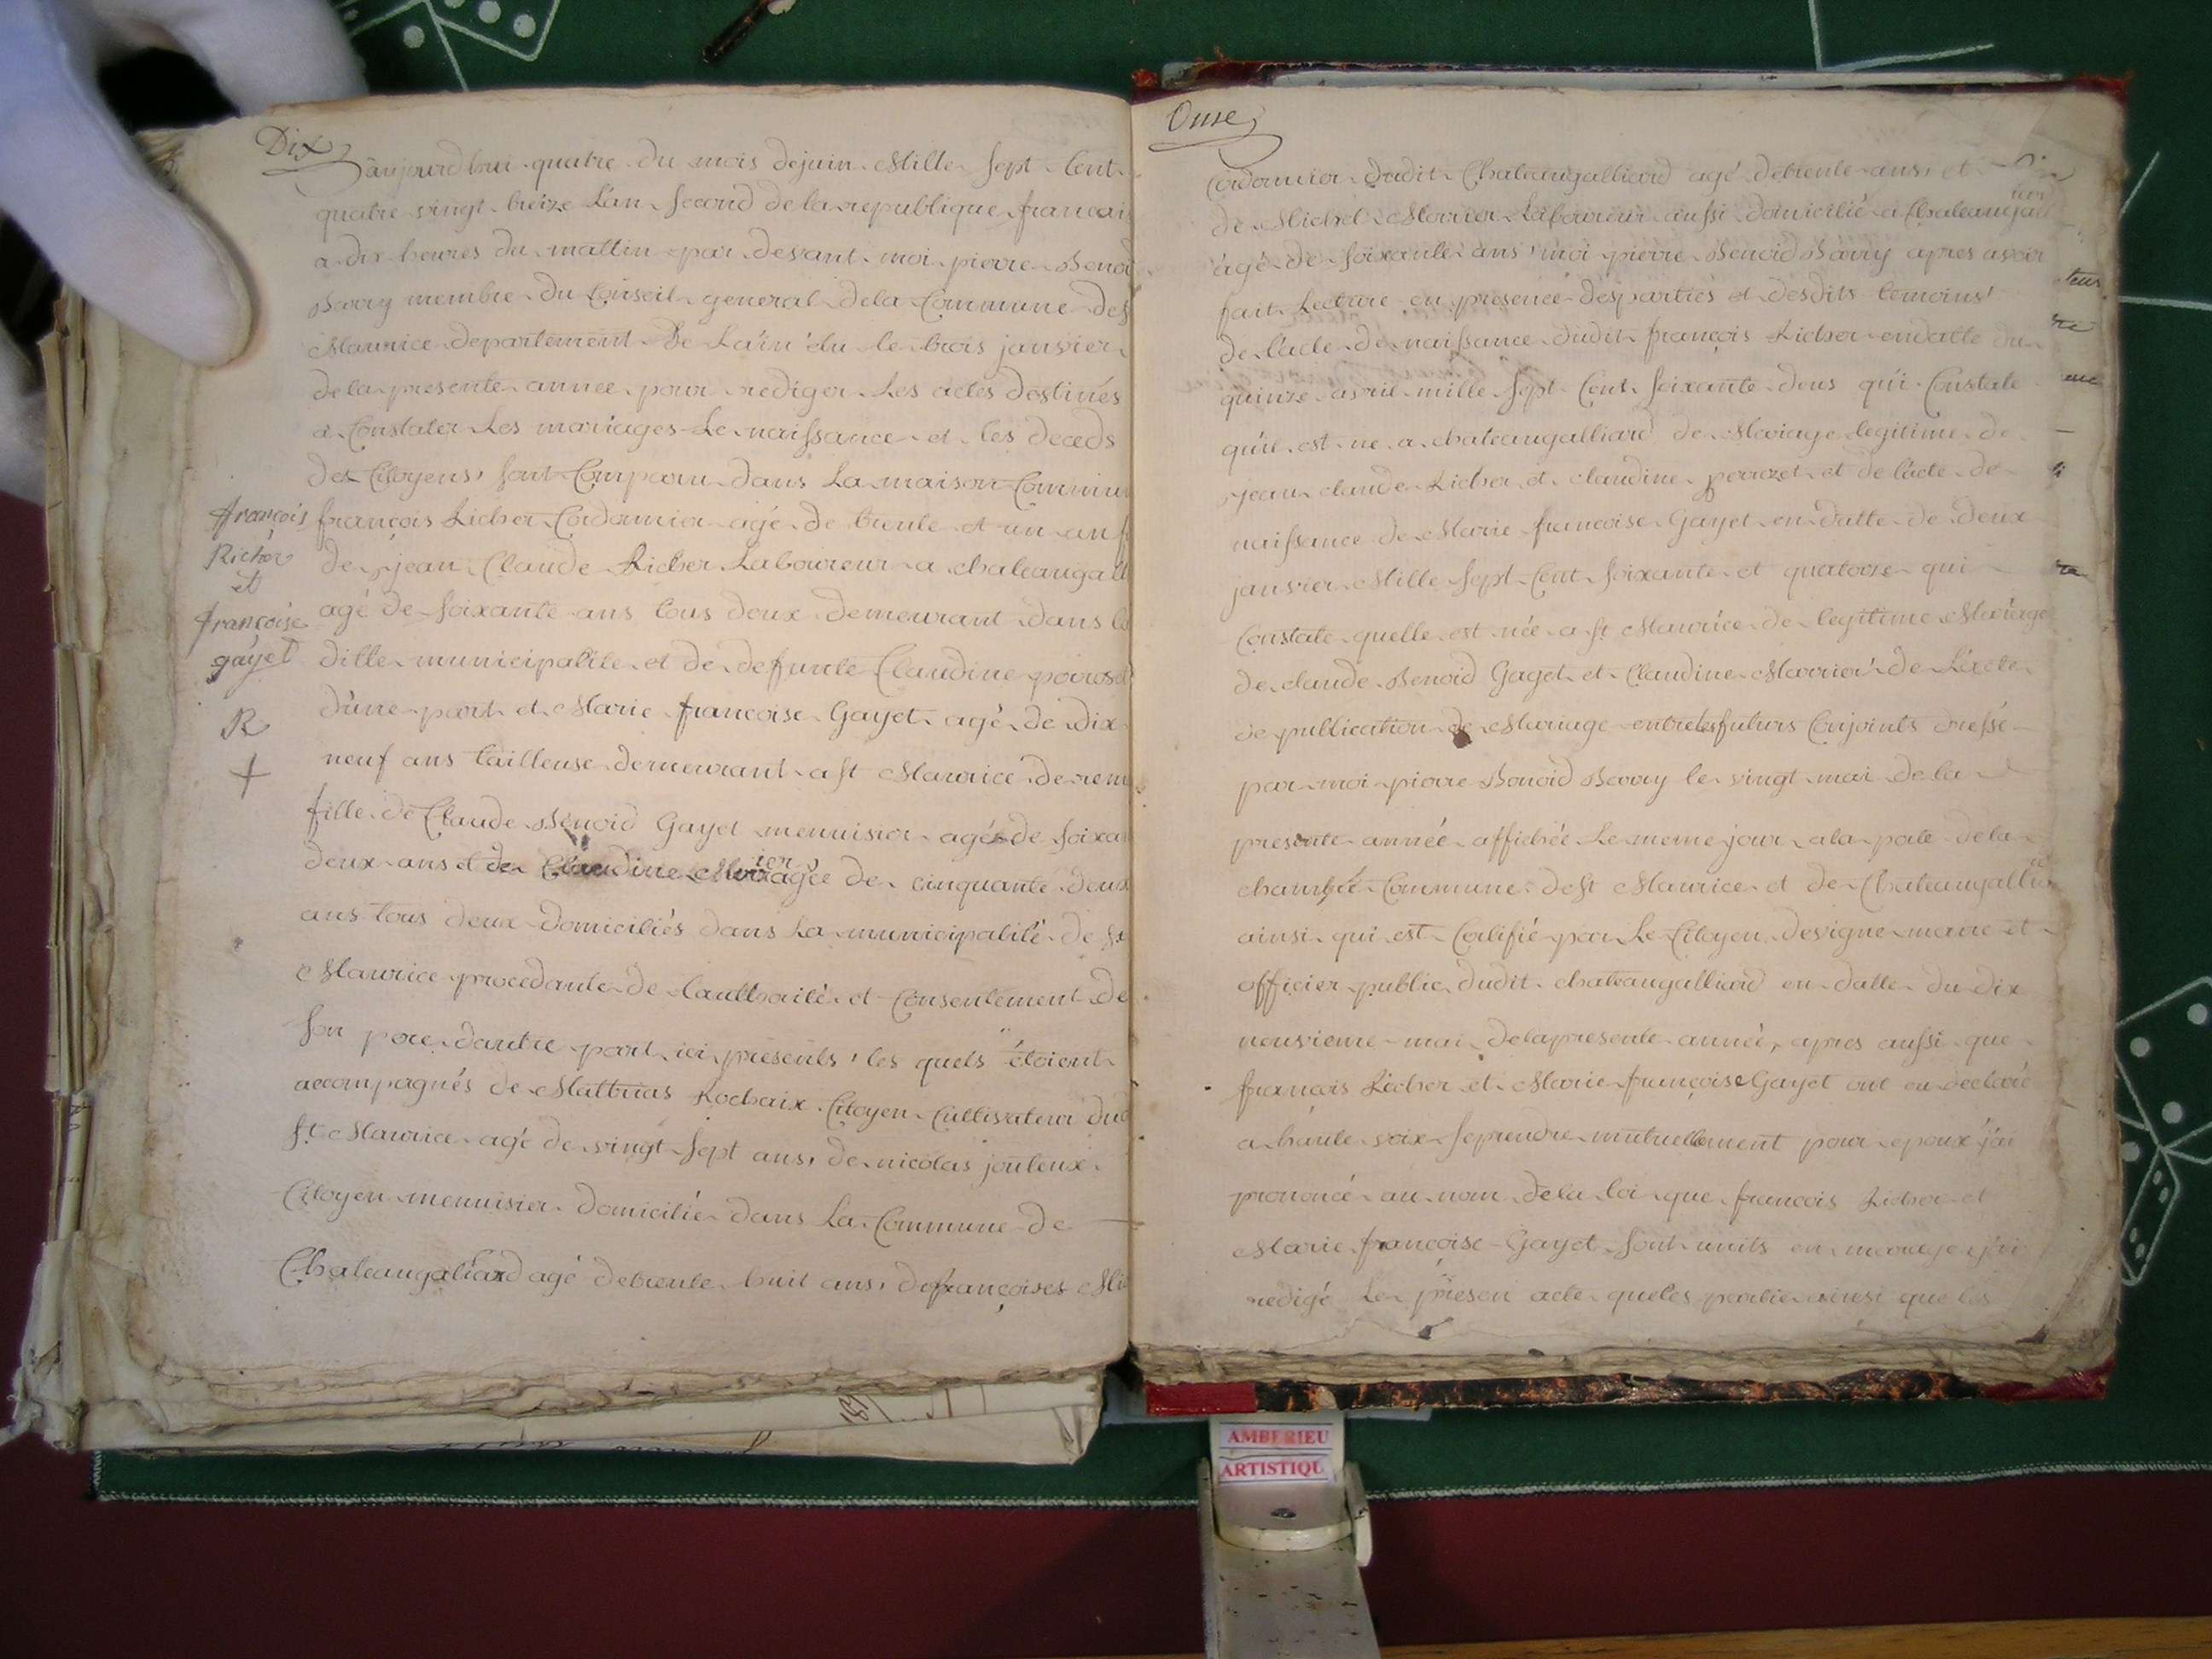 Dix
aujourd'hui quatre du mois dejuin Mille sept Cent
quatre vingt treize Lan second de la republique francai
a dix heures du mattin par devant moi pierre Benoi
Barry membre du Conseil general dela Commune des
Maurice departement De Lain élu le trois janvier
de la presente annee pour rediger Les actes destinés
a Constater Les mariages Le naissance et les deceds
des Citoyens, sont Comparu dans La maison Commun
françois Richer Cordonnier agé de trente et un an f
de jean Claude Richer Laboureur a chateaugall
agé de soixante ans tous deux demeurant dans la
ditte municipalite et de deffunte Claudine poirosel
d'une part et Marie francoise Gayet agé de Dix
neuf ans tailleuse demeurant a st Maurice de rem
fille de Claude Benoid Gayet menuisier agés de soixan
deux ans et de Claudine Morier agée de cinquante deux
ans tous deux domiciliés dans La municipalité de st
Maurice procedante de lauthorité et Consentement de
son pere dautre part ici presents, les quels étoient
accompagnés de Matthias Rochaix Citoyen Cultivateur dud
st Maurice agé de vingt sept ans, de nicolas jouleux
Citoyen menuisier domicilié dans La Commune de
Chateaugaliard agé detrente huit ans, de françoises Mi
françois
Richer
et
françoise
gayet
R
+
Onse
Cordonnier dudit Chateaugalliard agé detrente ans, et
de Michel Morrier Laboureur aussi domicilié a Chateaugall
iard
agé de soixante ans, moi pierre Benoid Barry apres avoir
fait Lecture en presence desparties et desdits temoins,
de l'acte de naissance dudit françois Richer endatte du
quinze avril mille sept Cent soixante deus qui Constate
qu'il est ne a chateaugalliard de Mariage legitime de
jean claude Richer et claudine perrozet et de lacte de
naissance de Marie francoise Gayet en datte de deux
janvier Mille sept Cent soixante et quatorse qui
Constate quelle est née a st Maurice de legitime Mariage
de claude Benoid Gayet et Claudine Marrier, de Lacte
de publication de Mariage entre les futurs Conjoints dressé
par moi pierre Benoid Barry le vingt mai de la
presente année affichée Le meme jour a la porte de la
chambre Commune de st Maurice et de Chateaugallia
ainsi qui est Certifié par Le Citoyen Devigne maire et
officier public dudit chateaugalliard en datte du dix
neuvieme mai delapresente année, apres aussi que
francois Richer et Marie françoise Gayet ont eu declaré
a haute voix se prendre mutuellement pour epoux j'ai
prononcé au nom dela loi que francois Richer et
Marie françoise Gayet sont units en mariage j'ai
redigé Le presen acte queles partie ainsi que les
AMBERIEU
ARTISTIQU